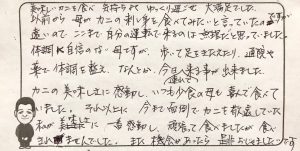 美味しいカニを食べ 気持ち良く ゆっくり過ごせ 大満足でした。
以前から 母が カニの刺身を食べてみたいと言っていたのですが
遠いので ここまで 自分の運転で来るのは 無理だと思っていました。
体調に自信のない母ですが、歩いて足をきたえたり、通院や
薬で体調を整え、なんとか、今日へ来る事が出来ました。
カニの美味しさに感動し、いつも少食の母も喜んで食べて
いました。それ以上に 今まで面倒でカニを敬遠していた
私が美味しさに一番感動し、頑張って食べましたが食べ
きれませんでした。また機会があったら是非うかがいたいです